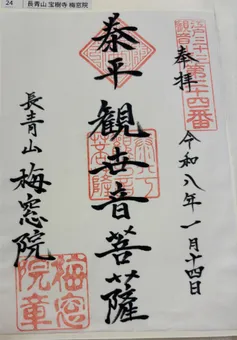 24
長青山 宝樹寺 梅窓院
江戸三十三
観音
第二十四番
奉拝
令和八年一月十四日
泰平観世音菩薩
長青山
梅窓院
梅窓
院章